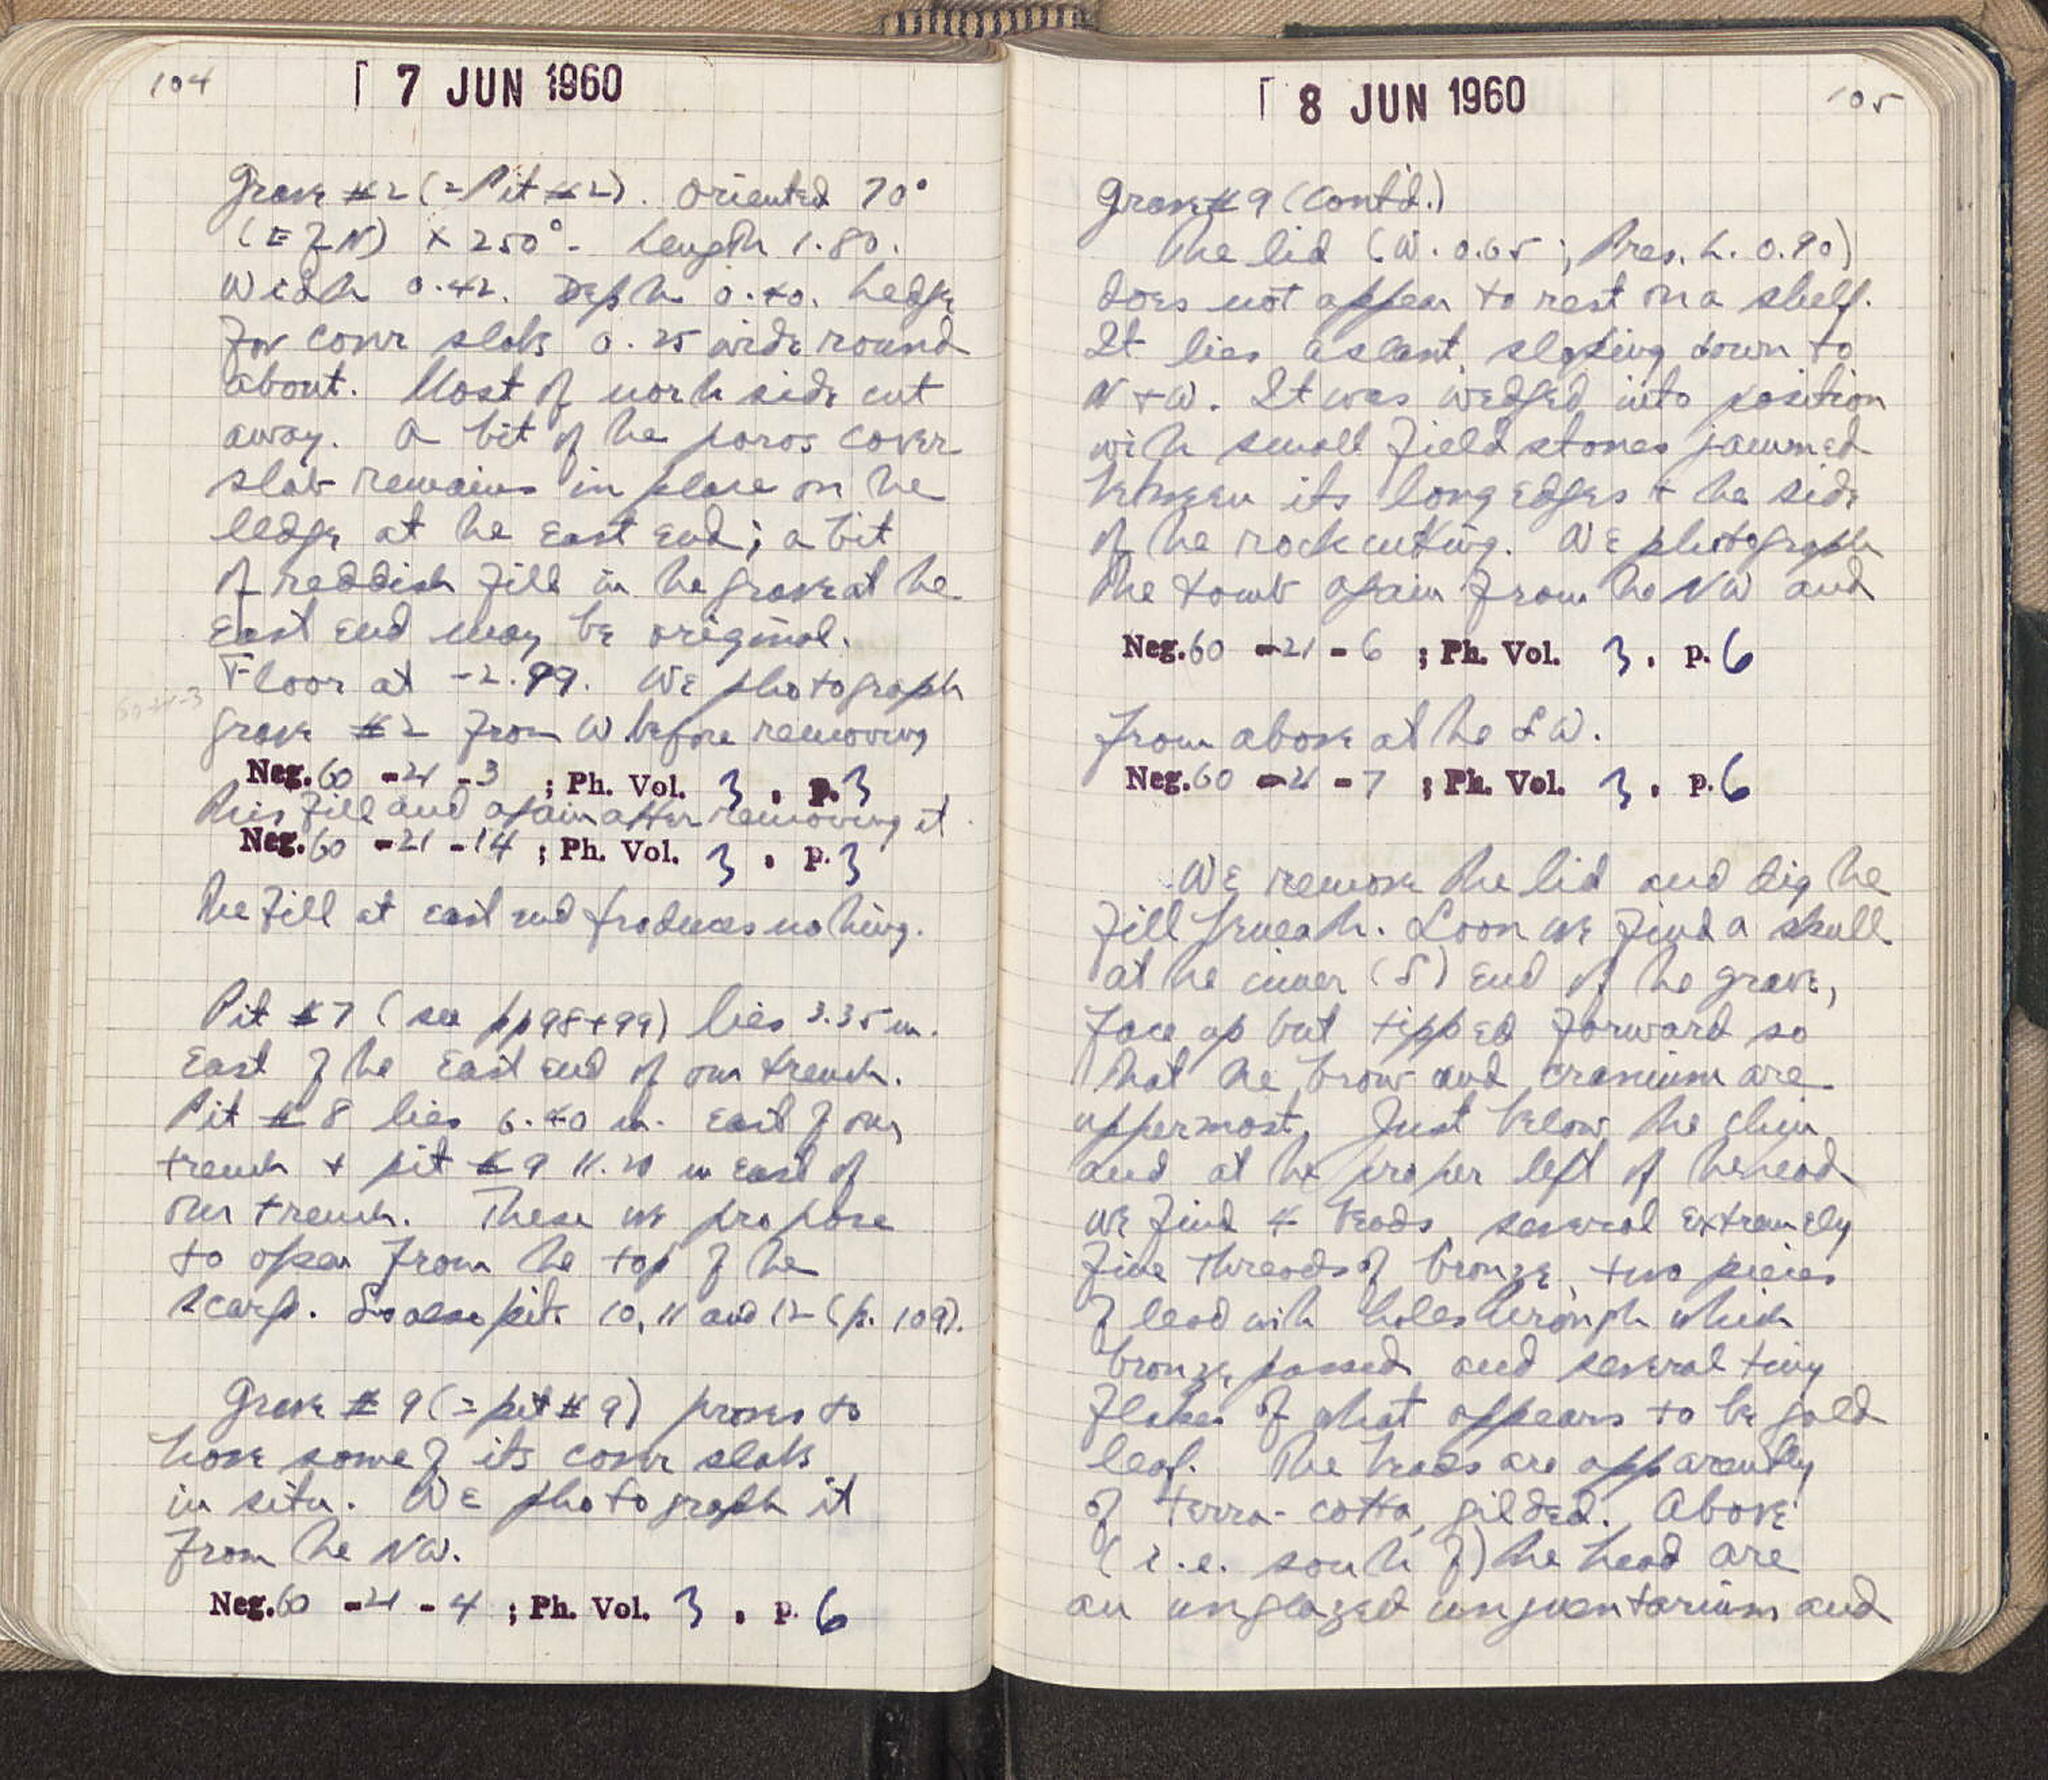 104
7 JUN 1960
Grave #2 (= Pit #2). Oriented 70°
(E of N) × 250°. Length 1.80.
Width 0.42. Depth 0.40. Ledge
for cover slabs 0.25 wide round
about. Most of north side cut
away. A bit of the poros cover
slab remains in place on the
ledge at the east end; a bit
of reddish fill in the grave at the
East end may be original.
Floor at -2.99. We photograph
60-21-3
grave #2 from W before removing
Neg. 60 - 21 - 3 ; Ph. Vol. 3 , p. 3
this fill and again after removing it.
Neg. 60 - 21 - 14 ; Ph. Vol. 3 , p. 3
The fill at east end produces nothing.
Pit #7 (see pp 98+99) lies 3.35 m.
East of the East end of our trench.
Pit #8 lies 6.40 m. east of our
trench + pit #9 11.20 m east of
our trench. These we propose
to open from the top of the
scarp. So also pits 10, 11 and 12 (p. 109).
Grave #9 (= pit #9) proves to
have some of its cover slabs
in situ. We photograph it
from the NW.
Neg. 60 - 21 - 4 ; Ph. Vol. 3 , p. 6
8 JUN 1960
105
Grave #9 (Cont'd.)
The lid (W. 0.65; Pres. L. 0.90)
does not appear to rest on a shelf.
It lies aslant, sloping down to
N + W. It was wedged into position
with small field stones jammed
between its long edges + the side
of the rock cutting. We photograph
the tomb again from the NW and
Neg. 60 - 21 - 6 ; Ph. Vol. 3 , p. 6
from above at the SW.
Neg. 60 - 21 - 7 ; Ph. Vol. 3 , p. 6
We remove the lid and dig the
fill beneath. Soon we find a skull
at the inner (S) end of the grave,
face up but tipped forward so
that the brow and cranium are
uppermost. Just below the chin
and at the proper left of the head
we find 4 beads, several extremely
fine threads of bronze, two pieces
of lead with holes through which
bronze passed and several tiny
flakes of what appears to be gold
leaf. The beads are apparently
of terra-cotta, gilded. Above
(i.e. south of) the head are
an unglazed unguentarium and